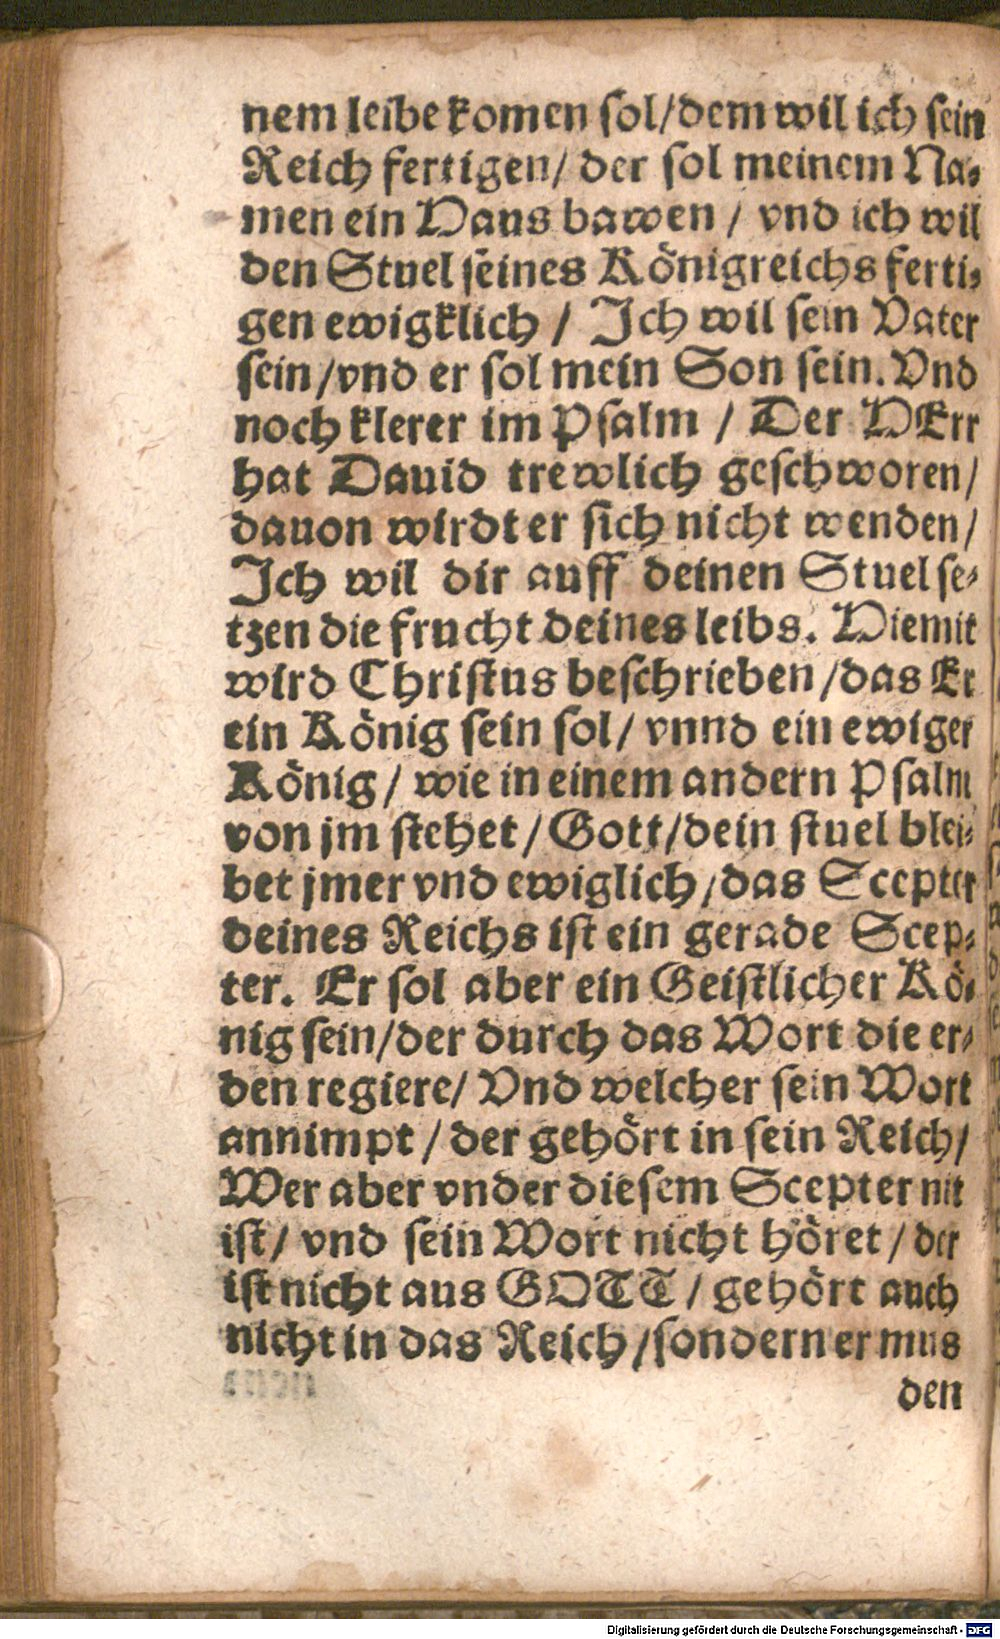 nem leibe komen sol/dem wil ich sein
Reich fertigen/ der sol meinem Na⸗
men ein Haus bawen / vnd ich wil
den Stuel seines Königreichs ferti⸗
gen ewigklich / Ich wil sein Vater
sein/vnd er sol mein Son sein. Vnd
noch klerer im Psalm / Der HErr
hat Dauid trewlich geschworen/
dauon wirdt er sich nicht wenden/
Ich wil dir auff deinen Stuel se⸗
tzen die frucht deines leibs. Hiemit
wird Christus beschrieben/das Er
ein König sein sol/ vnnd ein ewiger
König/ wie in einem andern Psalm
von jm stehet/Gott/dein stuel blei⸗
bet jmer vnd ewiglich/das Scepter
deines Reichs ist ein gerade Scep⸗
ter. Er sol aber ein Geistlicher Kö⸗
nig sein/der durch das Wort die er⸗
den regiere/ Vnd welcher sein Wort
annimpt/der gehört in sein Reich/
Wer aber vnder diesem Scepter nit
ist/ vnd sein Wort nicht höret/ der
ist nicht aus GOTT/gehört auch
nicht in das Reich/sondern er mus
den
Digitalisierung gefördert durch die Deutsche Forschungsgemeinschaft - DFG